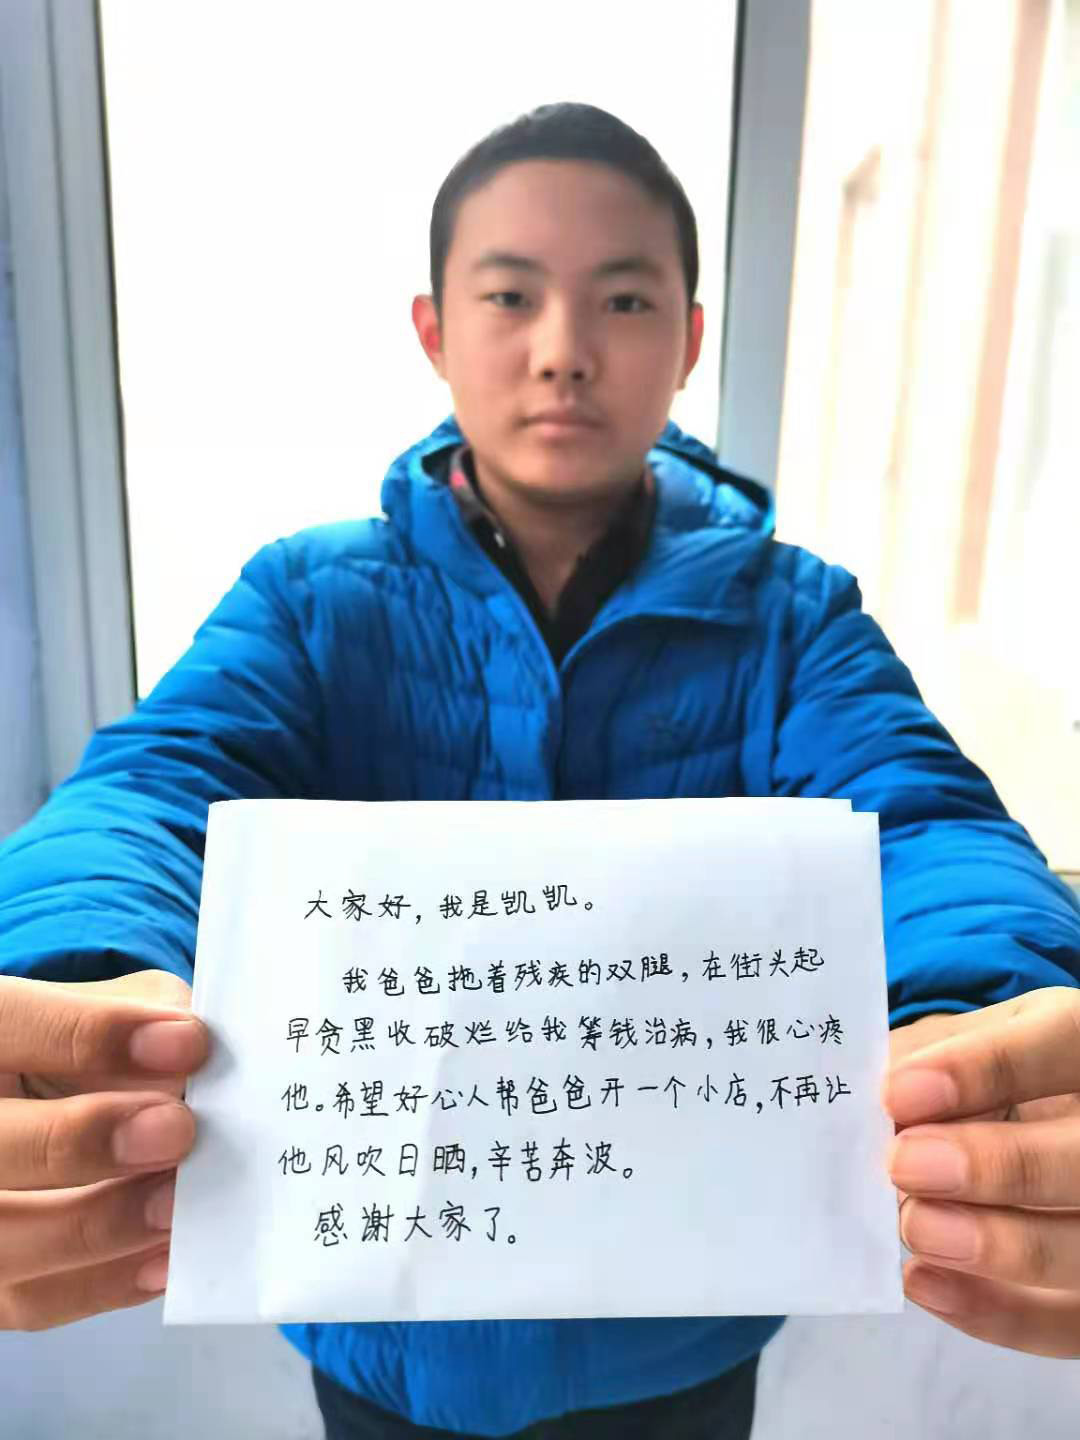 大家好，我是凯凯。
我爸爸拖着残疾的双腿，在街头起
早贪黑收破烂给我筹钱治病，我很心疼
他。希望好心人帮爸爸开一个小店，不再让
他风吹日晒，辛苦奔波。
感谢大家了。